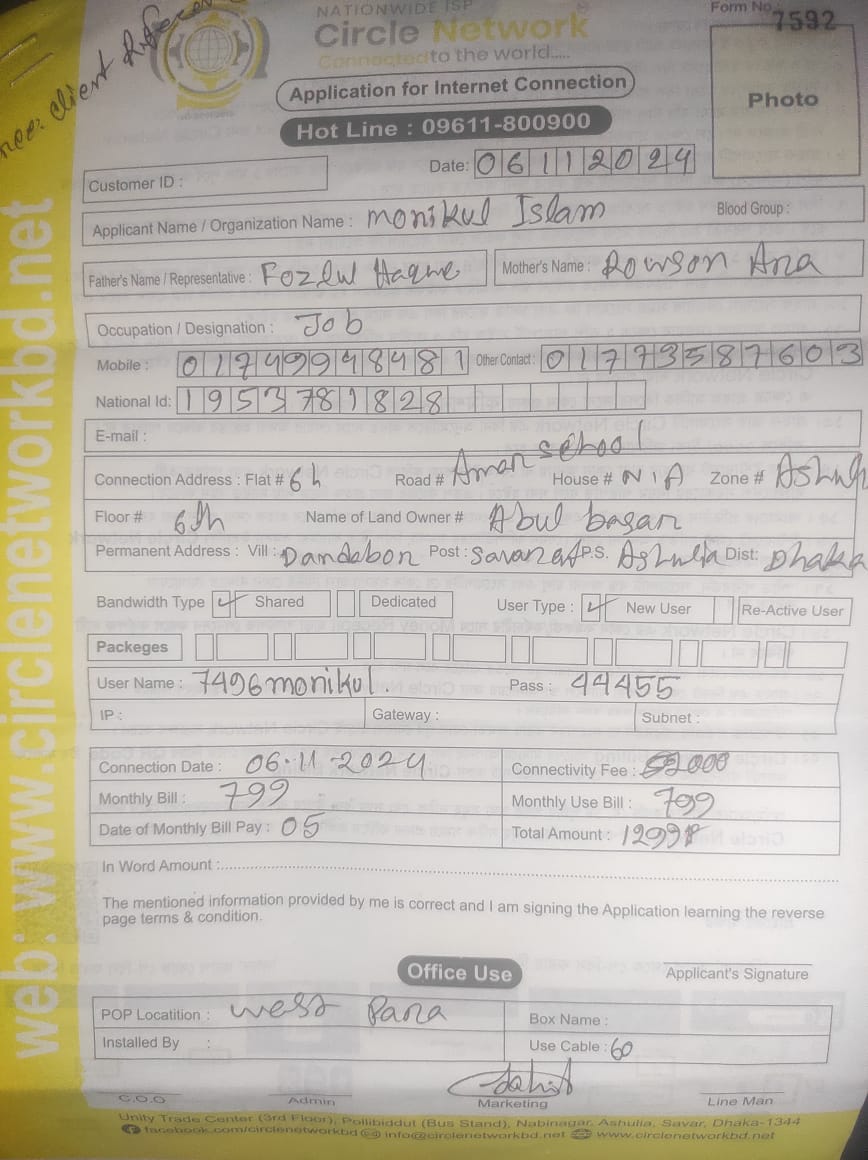 NATIONWIDE ISP
Circle Network
Connected to the world.....
Form No.: 7592
Photo
Application for Internet Connection
Hot Line : 09611-800900
Date: 06112024
Customer ID :
Applicant Name / Organization Name : monikul Islam Blood Group :
Father's Name / Representative : Fozlul Haque Mother's Name : Rowson Ara
Occupation / Designation : Job
Mobile : 01749994848 1 Other Contact : 01773587603
National Id: 1953781828
E-mail :
Connection Address : Flat # 6th Road # Aman school House # N/A Zone # Ashuli
Floor # 6th Name of Land Owner # Abul basar
Permanent Address : Vill : Dandabon Post : P.S. Ashulia Dist: Dhaka
Bandwidth Type ✓ Shared Dedicated User Type : ✓ New User Re-Active User
Packeges
User Name : 7496monikul. Pass : 44455
IP : Gateway : Subnet :
Connection Date : 06-11-2024 Connectivity Fee :
Monthly Bill : 799 Monthly Use Bill : 799
Date of Monthly Bill Pay : 05 Total Amount :
In Word Amount :
The mentioned information provided by me is correct and I am signing the Application learning the reverse
page terms & condition.
Applicant's Signature
Office Use
POP Locatition : west Para Box Name :
Installed By : Use Cable : 60
C.O.O Admin Marketing Line Man
Unity Trade Center (3rd Floor), Pollibiddut (Bus Stand), Nabinagar, Ashulia, Savar, Dhaka-1344
facebook.com/circlenetworkbd info@circlenetworkbd.net www.circlenetworkbd.net
web: www.circlenetworkbd.net